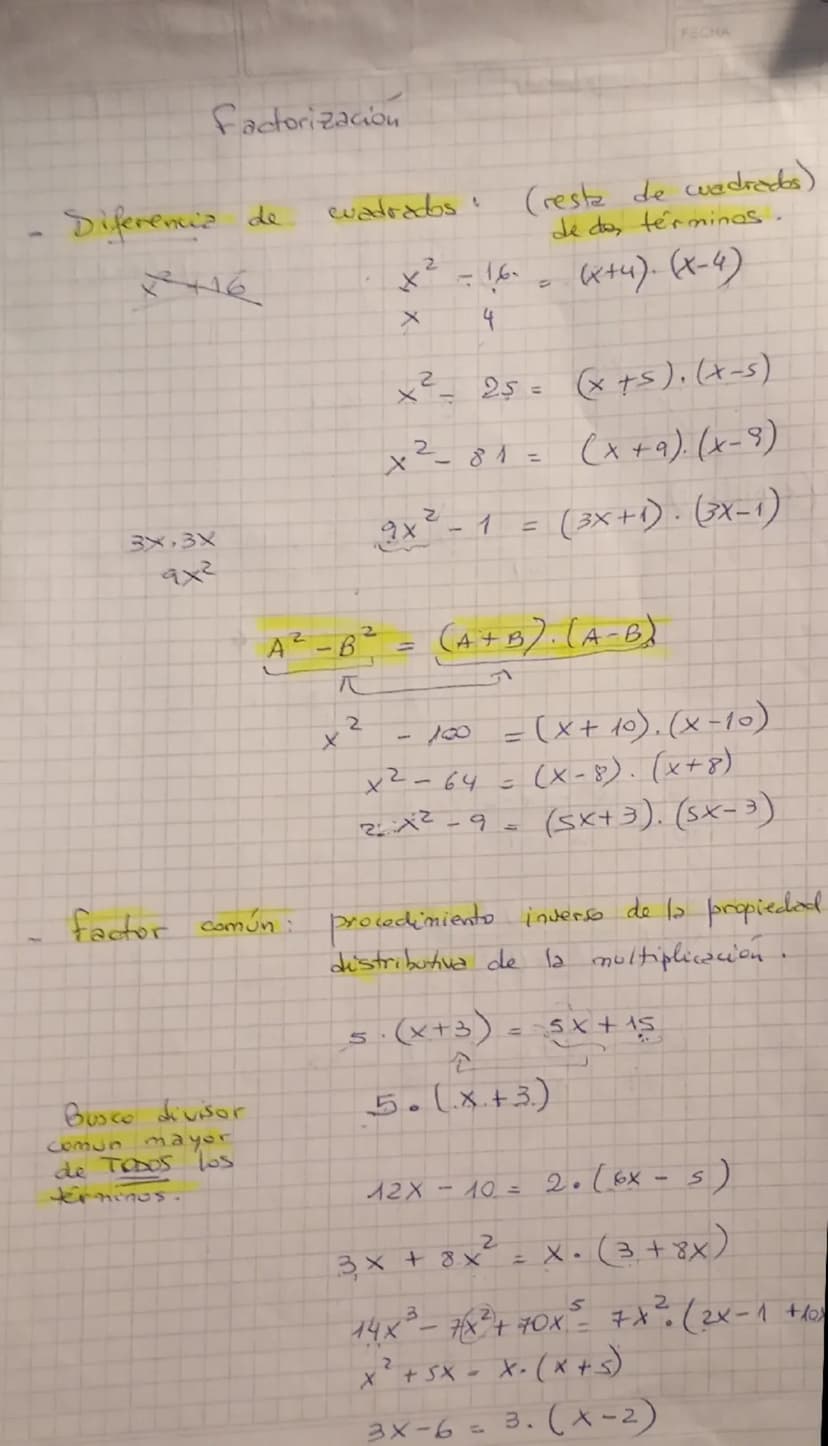 FECHA
Factorización
- Diferencia de cuadrados: (resta de cuadrados)
de dos términos.
x² + 16
x² - 16 = (x+4).(x-4)
x 4
x² - 25 = (x+5).(x-5)
x² - 81 = (x+9).(x-9)
9x² - 1 = (3x+1).(3x-1)
3x.3x
9x²
A² - B² = (A+B).(A-B)
x² - 100 = (x+10).(x-10)
x² - 64 = (x-8).(x+8)
x² - 9 = (5x+3).(5x-3)
- Factor común: procedimiento inverso de la propiedad
distributiva de la multiplicación.
5.(x+3) = 5x+15
5.(x+3)
Busco divisor
comun mayor
de TODOS los
términos.
12x - 10 = 2.(6x - 5)
3x + 8x² = x.(3+8x)
14x³ - 7x² + 70x⁵ = 7x².(2x - 1 + 10x
x² + 5x = x.(x+5)
3x - 6 = 3.(x-2)